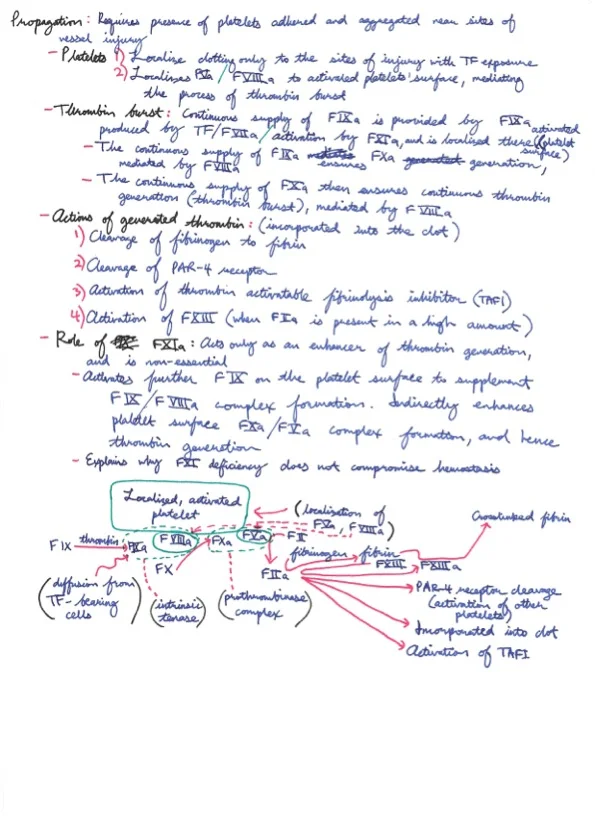 Propagation: Requires presence of platelets adhered and aggregated near sites of
vessel injury
- Platelets 1) Localise clotting only to the sites of injury with TF exposure
2) Localises FVa / FVIIIa to activated platelets' surface, mediating
the process of thrombin burst
- Thrombin burst: Continuous supply of FIXa is provided by FIXa
produced by TF/FVIIa / activation by FXIa, and is localised there (activated platelet surface)
- The continuous supply of FIXa ensures FXa generation,
mediated by FVIIIa
- The continuous supply of FXa then ensures continuous thrombin
generation (thrombin burst), mediated by FVIIIa
- Actions of generated thrombin: (incorporated into the clot)
1) Cleavage of fibrinogen to fibrin
2) Cleavage of PAR-4 receptor
3) Activation of thrombin activatable fibrinolysis inhibitor (TAFI)
4) Activation of FXIII (when FIIa is present in a high amount)
- Role of FXIa: Acts only as an enhancer of thrombin generation,
and is non-essential
- Activates further FIX on the platelet surface to supplement
FIX/FVIIIa complex formation. Indirectly enhances
platelet surface FXa/FVa complex formation, and hence
thrombin generation
- Explains why FXI deficiency does not compromise hemostasis
Localized, activated
platelet
(localisation of
FVa, FVIIIa)
Crosslinked fibrin
FIX thrombin FIXa FVIIIa FXa FVa FII
fibrinogen fibrin
FX
FIIa
FXIII FXIIIa
(diffusion from
TF-bearing
cells)
(intrinsic
tenase)
(prothrombinase
complex)
PAR-4 receptor cleavage
(activation of other
platelets)
Incorporated into clot
Activation of TAFI